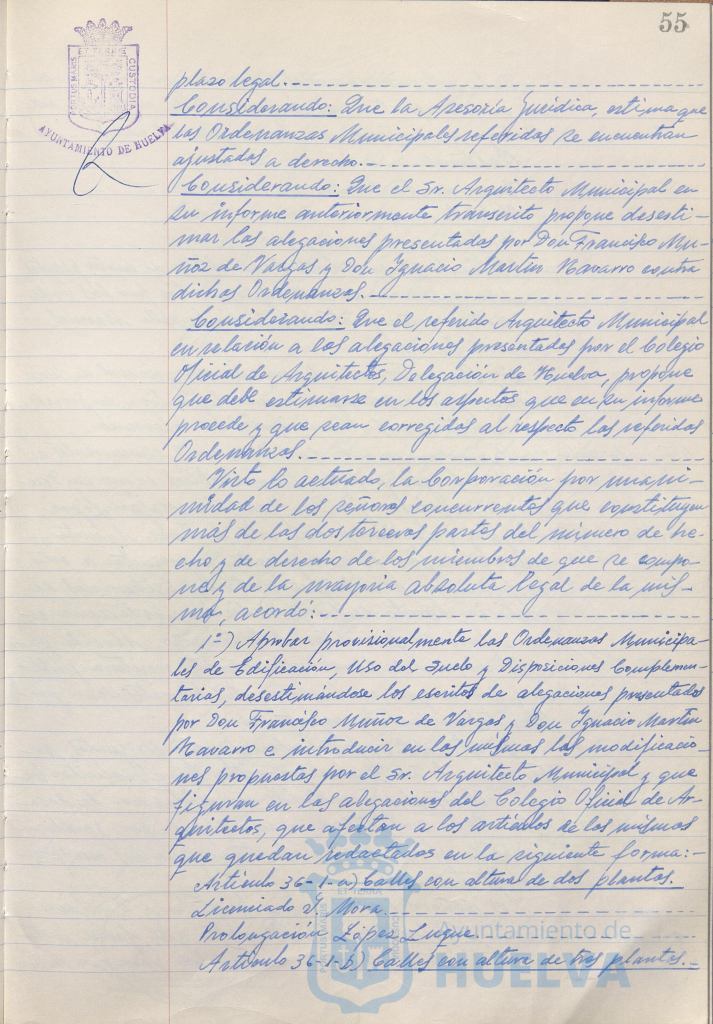 55
PORTUS MARIS ET TERRE CUSTODIA
AYUNTAMIENTO DE HUELVA
plazo legal.
Considerando: Que la Asesoría Jurídica, estima que
las Ordenanzas Municipales referidas se encuentran
ajustadas a derecho.
Considerando: Que el Sr. Arquitecto Municipal en
su informe anteriormente transcrito propone desesti-
mar las alegaciones presentadas por Don Francisco Mu-
ñoz de Vargas y Don Ignacio Martin Navarro contra
dichas Ordenanzas.
Considerando: Que el referido Arquitecto Municipal
en relación a las alegaciones presentadas por el Colegio
Oficial de Arquitectos, Delegación de Huelva, propone
que debe estimarse en los aspectos que en su informe
procede y que sean corregidas al respecto las referidas
Ordenanzas.
Visto lo actuado, la Corporación por unani-
midad de los señores concurrentes que constituyen
más de las dos terceras partes del número de he-
cho y de derecho de los miembros de que se compo-
ne y de la mayoria absoluta legal de la mis-
ma, acordó:
1º) Aprobar provisionalmente las Ordenanzas Municipa-
les de Edificación, Uso del Suelo y Disposiciones Complemen-
tarias, desestimándose los escritos de alegaciones presentados
por Don Francisco Muñoz de Vargas y Don Ignacio Martin
Navarro e introducir en las mismas las modificacio-
nes propuestas por el Sr. Arquitecto Municipal y que
figuran en las alegaciones del Colegio Oficial de Ar-
quitectos, que afectan a los artículos de las mismas
que quedan redactados en la siguiente forma:-
Artículo 36-1-a) Calles con altura de dos plantas.
Licenciado J. Mora.
Prolongación López Luque
Artículo 36-1-b) Calles con altura de tres plantas.
Ayuntamiento de
HUELVA